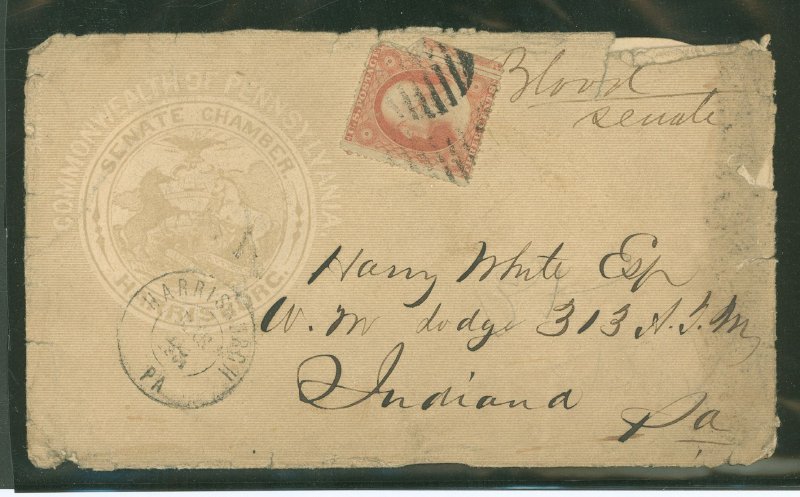 COMMONWEALTH OF PENNSYLVANIA
SENATE CHAMBER
HARRISBURG.
U.S. POSTAGE
Blood
senate
HARRISBURGH
PA
Harry White Esq
W. M lodge 313 A.Y.M,
Indiana
Pa